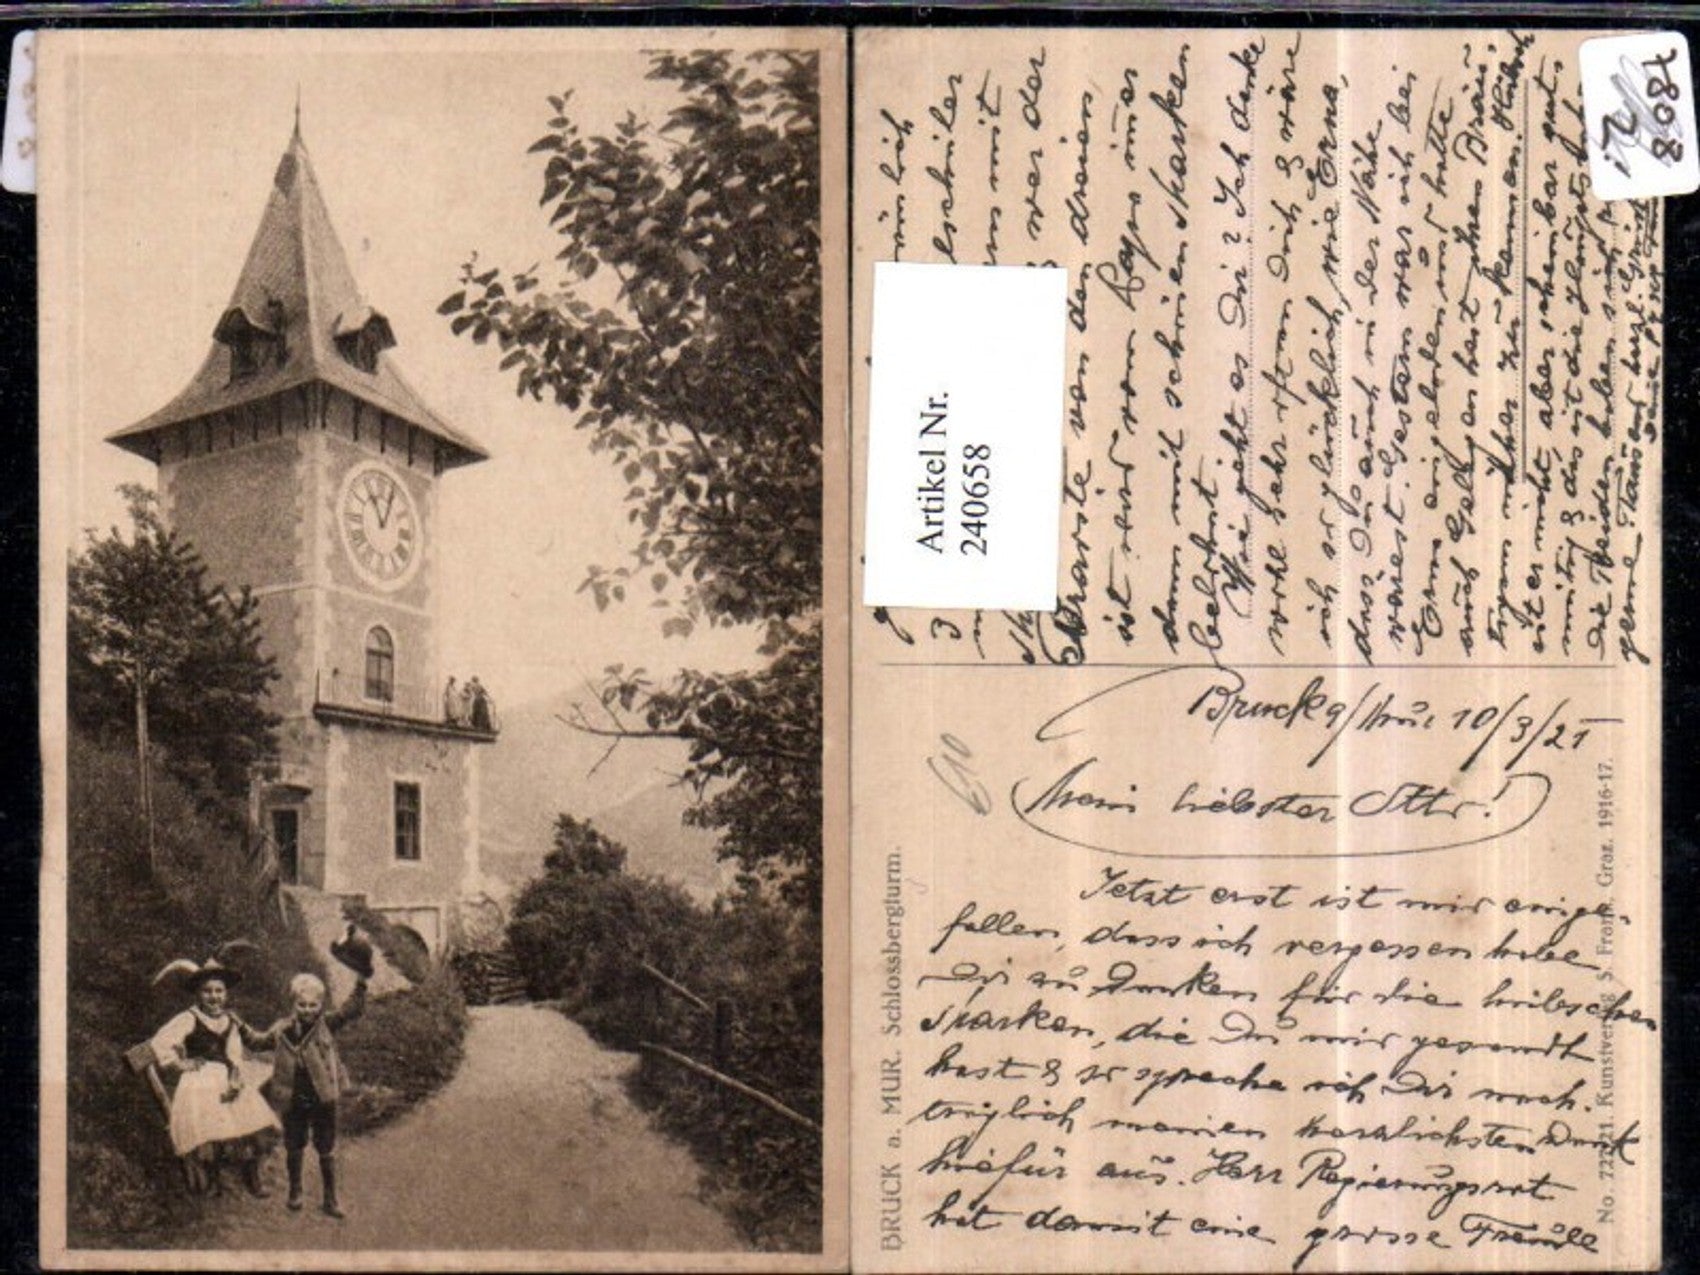 Bruck a/Mur 10/3/21
Mein liebster Otto!
Jetzt erst ist mir einge-
fallen, dass ich vergessen habe
Dir zu danken für die hübschen
Marken, die Du mir gesandt
hast & so spreche ich Dir nach-
träglich meinen herzlichsten Dank
hiefür aus. Herr Regierungsrat
hat damit eine grosse Freude
3
mit
wer der
Karte von den dreien
ist wird vom Papa immer
dann mit schönen Marken
belohnt.
Wie geht es Dir? Ich denke
wohl sehr oft an Dich & wäre
ich so glücklich, wie Erna,
dass Du auch in der Nähe
wärest. Gestern war ich bei
Erna eingeladen und hatte
auch Gelegenheit ihren Bräu-
tigam näher zu kennen. Hübsch
ist er nicht aber scheinbar gut-
mütig & das ist die Hauptsache.
Die Beiden haben sich
gerne.
BRUCK a. MUR. Schlossbergturm.
No. 722221. Kunstverlag S. Frank. Graz. 1916-17.
Artikel Nr.
240658
7808